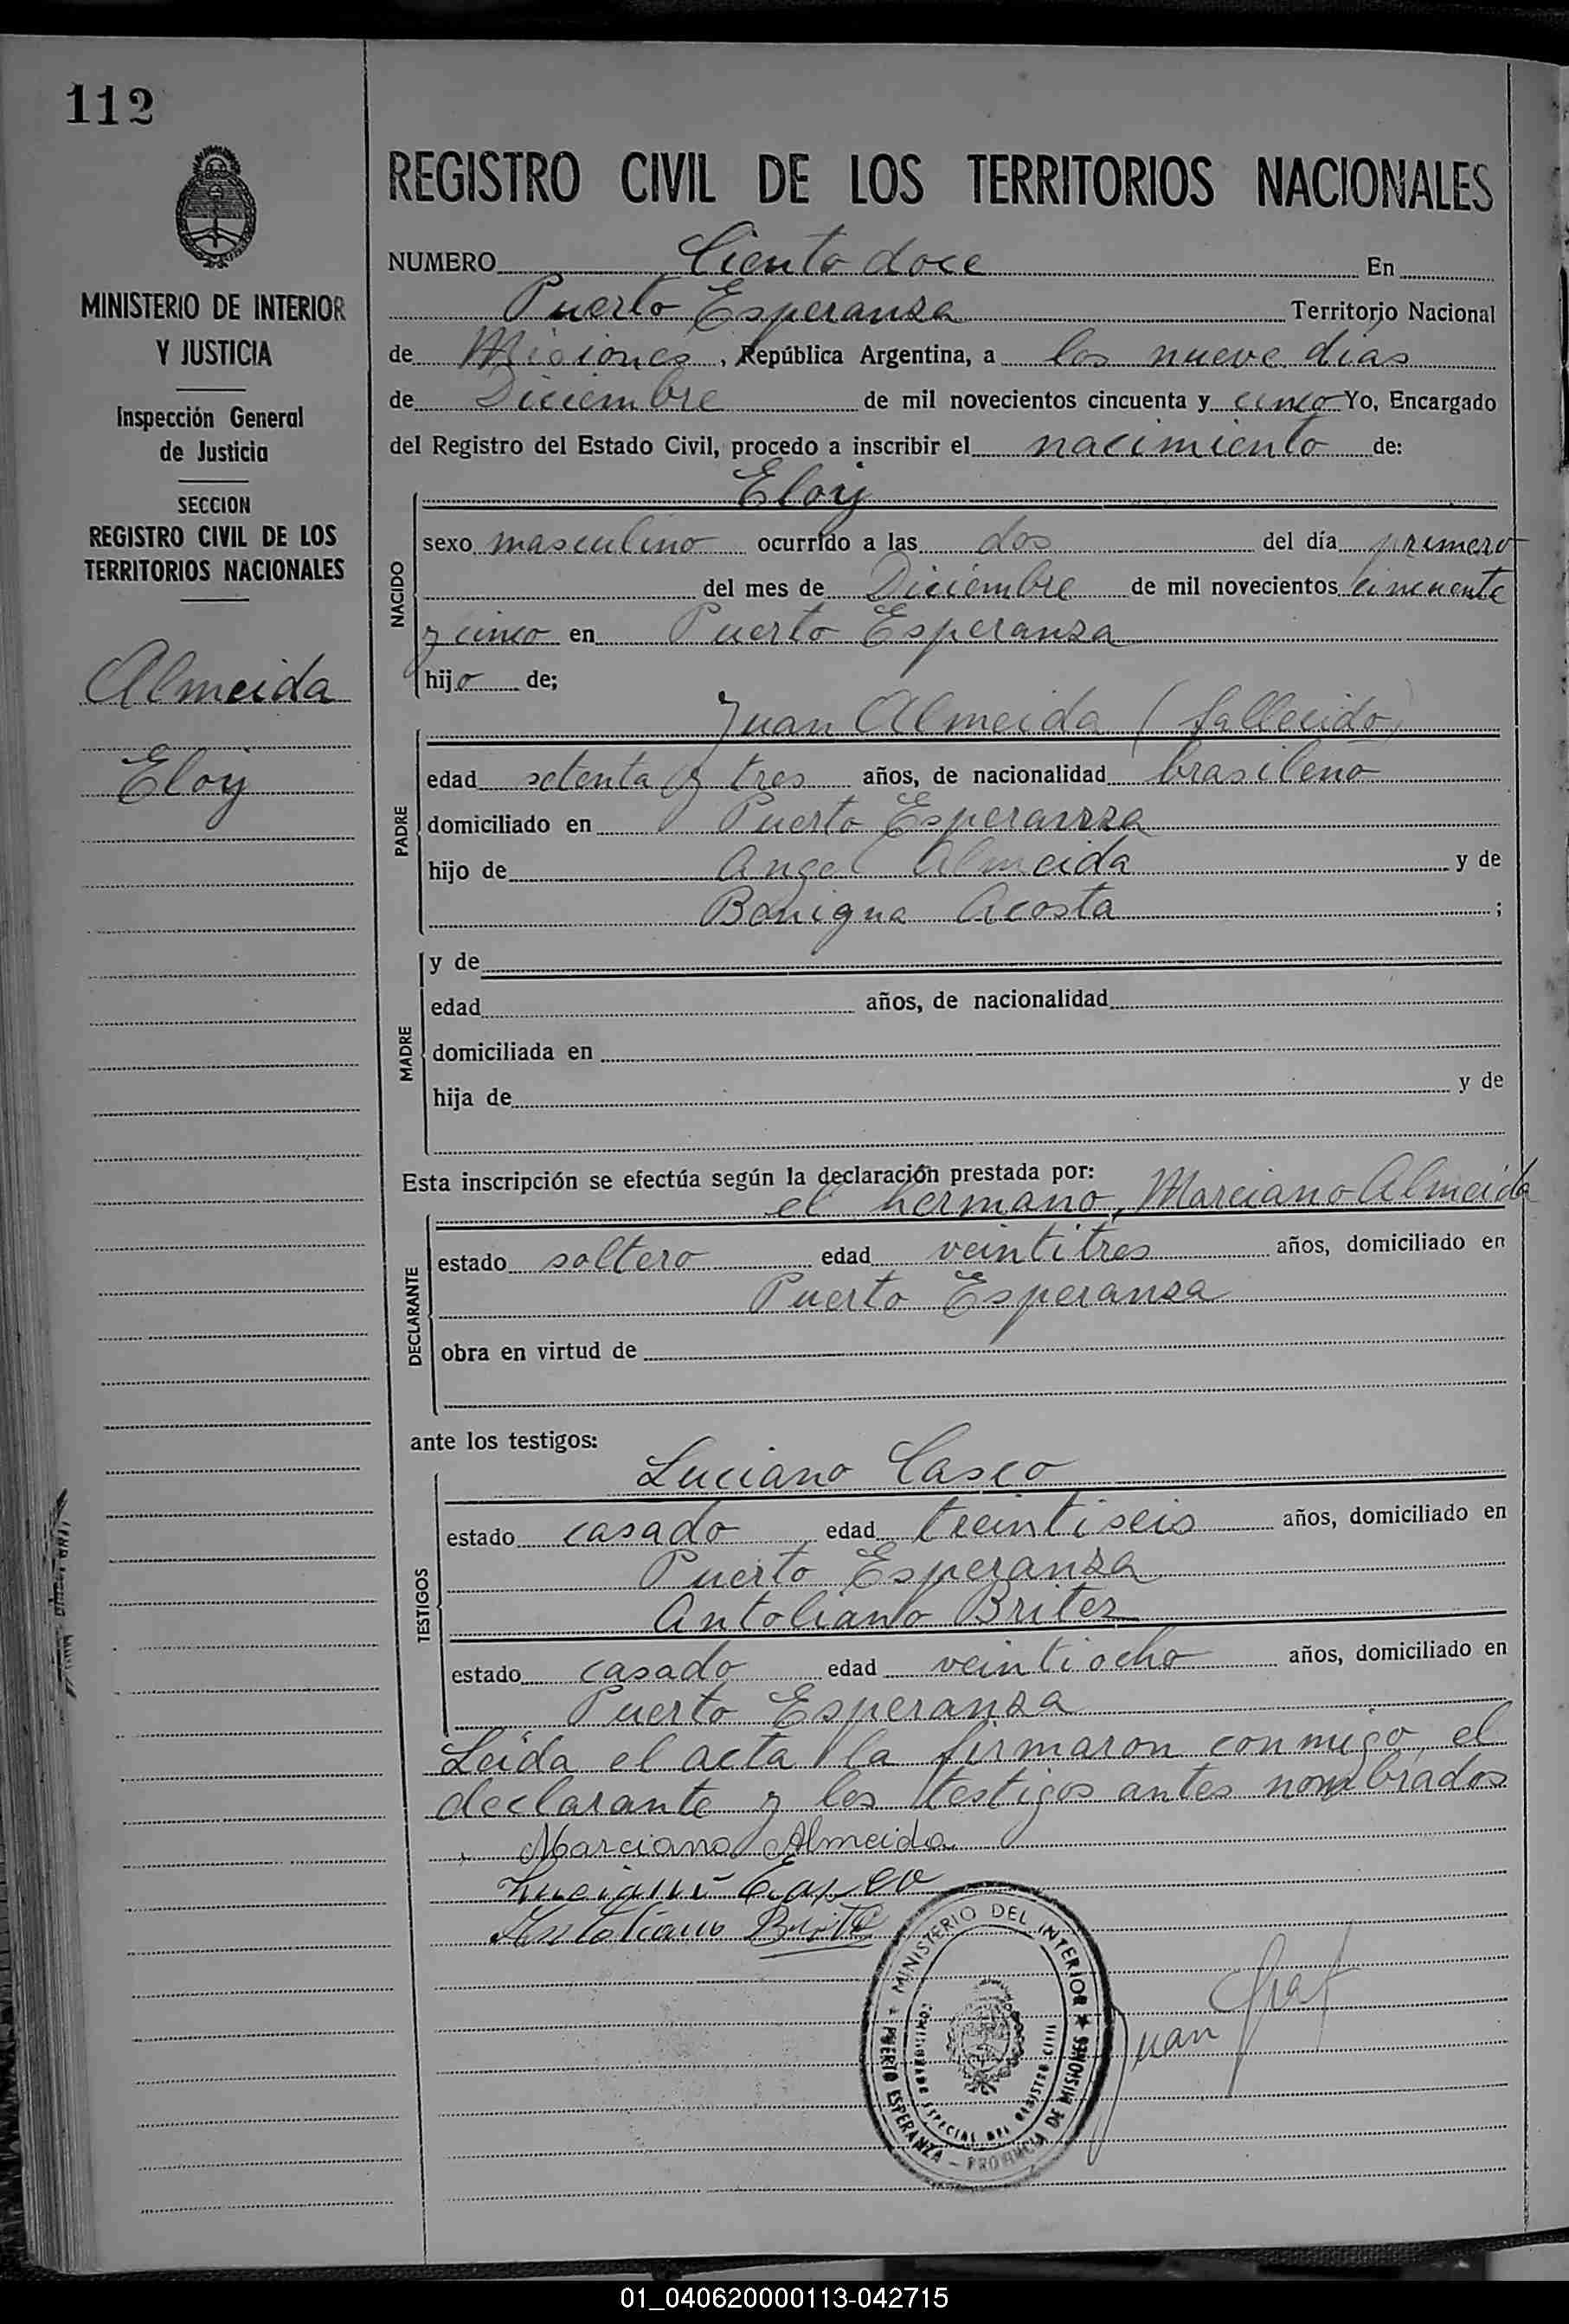 112
REGISTRO CIVIL DE LOS TERRITORIOS NACIONALES
MINISTERIO DE INTERIOR
Y JUSTICIA
Inspección General
de Justicia
SECCION
REGISTRO CIVIL DE LOS
TERRITORIOS NACIONALES
Almeida
Eloy
NUMERO Ciento doce En
Puerto Esperanza Territorio Nacional
de Misiones, República Argentina, a los nueve dias
de Diciembre de mil novecientos cincuenta y cinco Yo, Encargado
del Registro del Estado Civil, procedo a inscribir el nacimiento de:
NACIDO
Eloy
sexo masculino ocurrido a las dos del día primero
del mes de Diciembre de mil novecientos cincuenta
y cinco en Puerto Esperanza
hijo de;
PADRE
Juan Almeida (fallecido)
edad setenta y tres años, de nacionalidad brasileno
domiciliado en Puerto Esperanza
hijo de Angel Almeida y de
Benigna Acosta ;
MADRE
y de
edad años, de nacionalidad
domiciliada en
hija de y de
Esta inscripción se efectúa según la declaración prestada por:
DECLARANTE
el hermano, Marciano Almeida
estado soltero edad veintitres años, domiciliado en
Puerto Esperanza
obra en virtud de
ante los testigos:
TESTIGOS
Luciano Casco
estado casado edad treintiseis años, domiciliado en
Puerto Esperanza
Antoliano Britez
estado casado edad veintiocho años, domiciliado en
Puerto Esperanza
Leida el acta la firmaron conmigo, el
declarante y los testigos antes nombrados
Marciano Almeida
Luciano Casco
Antoliano Britez
MINISTERIO DEL INTERIOR
PUERTO ESPERANZA - PROVINCIA DE MISIONES
ESPECIAL DEL REGISTRO CIVIL
Juan
01_040620000113-042715